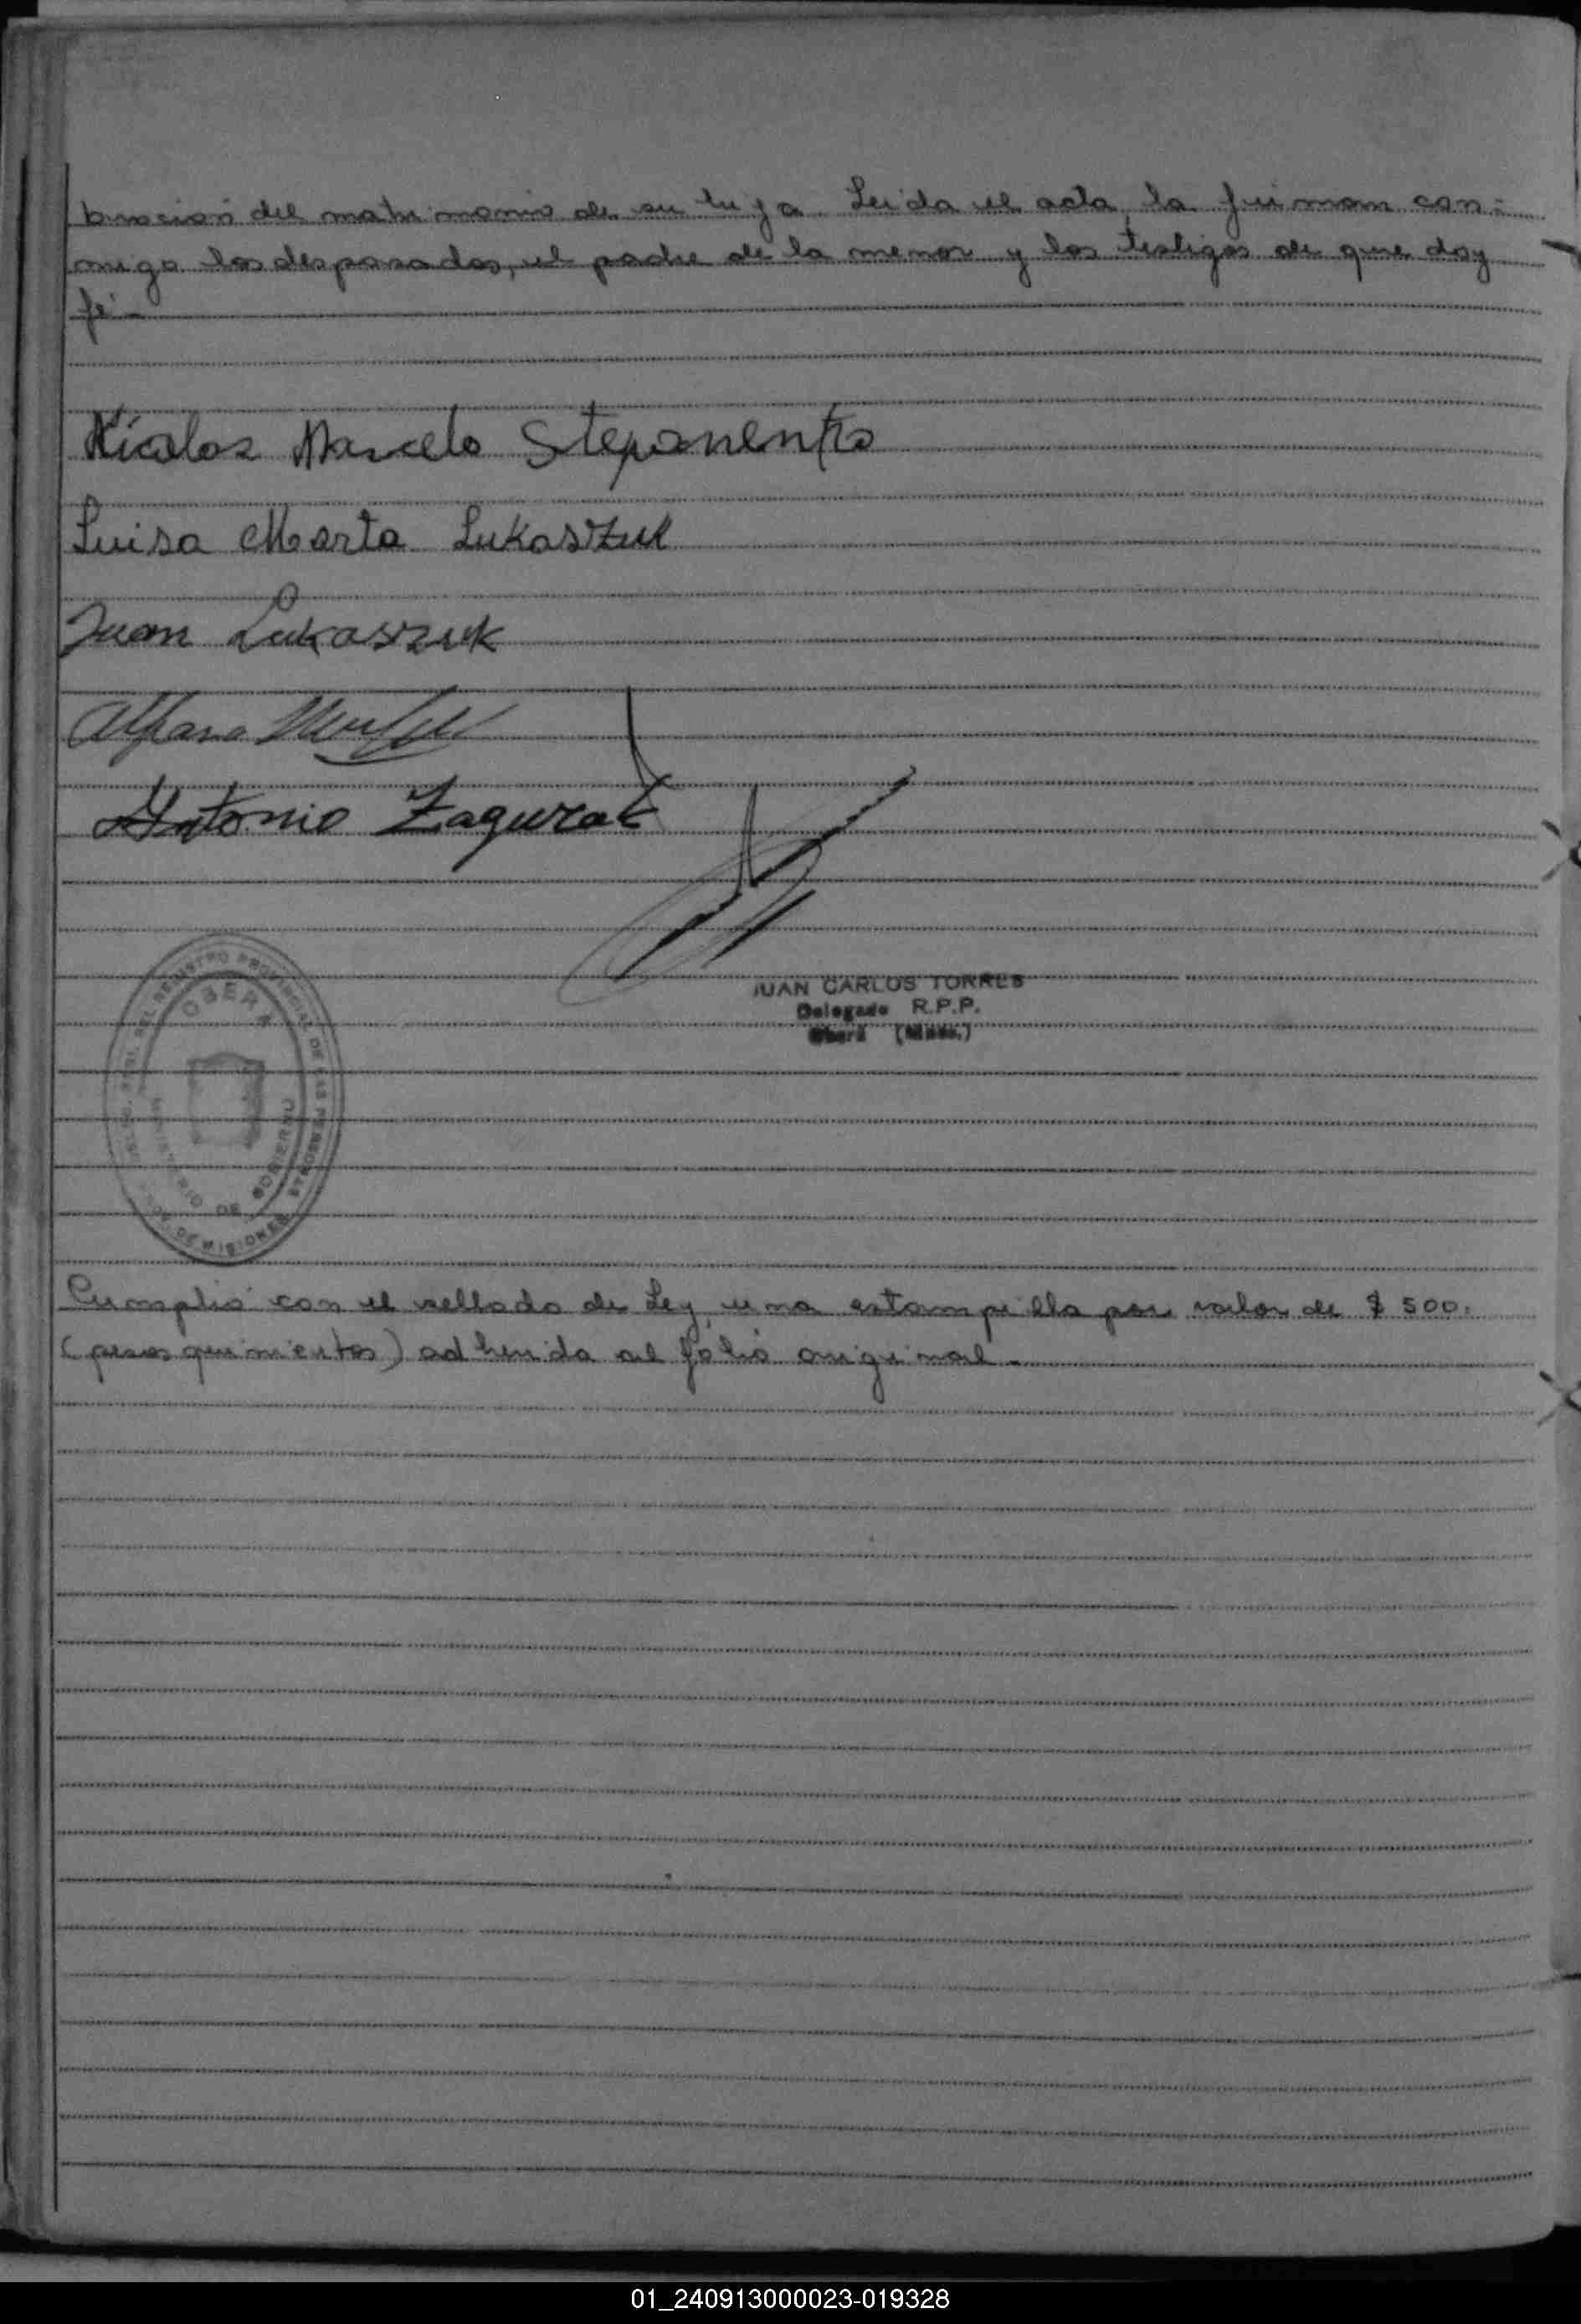 bración del matrimonio de su hija Leida el acta, la firman con-
migo los desposados, el padre de la menor y los testigos de que doy
fé.-
Nicolas Marcelo Stepanenko
Luisa Marta Lukaszuk
Juan Lukaszuk
Antonio Zagurak
JUAN CARLOS TORRES
Delegado R.P.P.
Oberá (Mnes.)
DEL REGISTRO PROVINCIAL DE LAS PERSONAS
OBERA
MINISTERIO DE GOBIERNO
DE MISIONES
Cumplió con el sellado de Ley, una estampilla por valor de $ 500.
(pesos quinientos) adherida al folio original.-
01_240913000023-019328